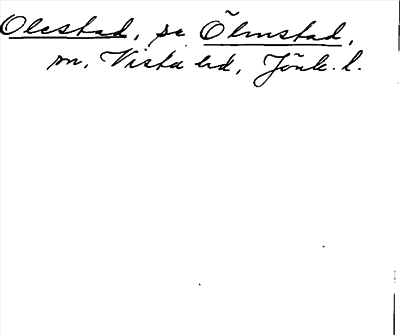 Olestad, se Õlmstad,
sn, Vista hd, Jönk. l.